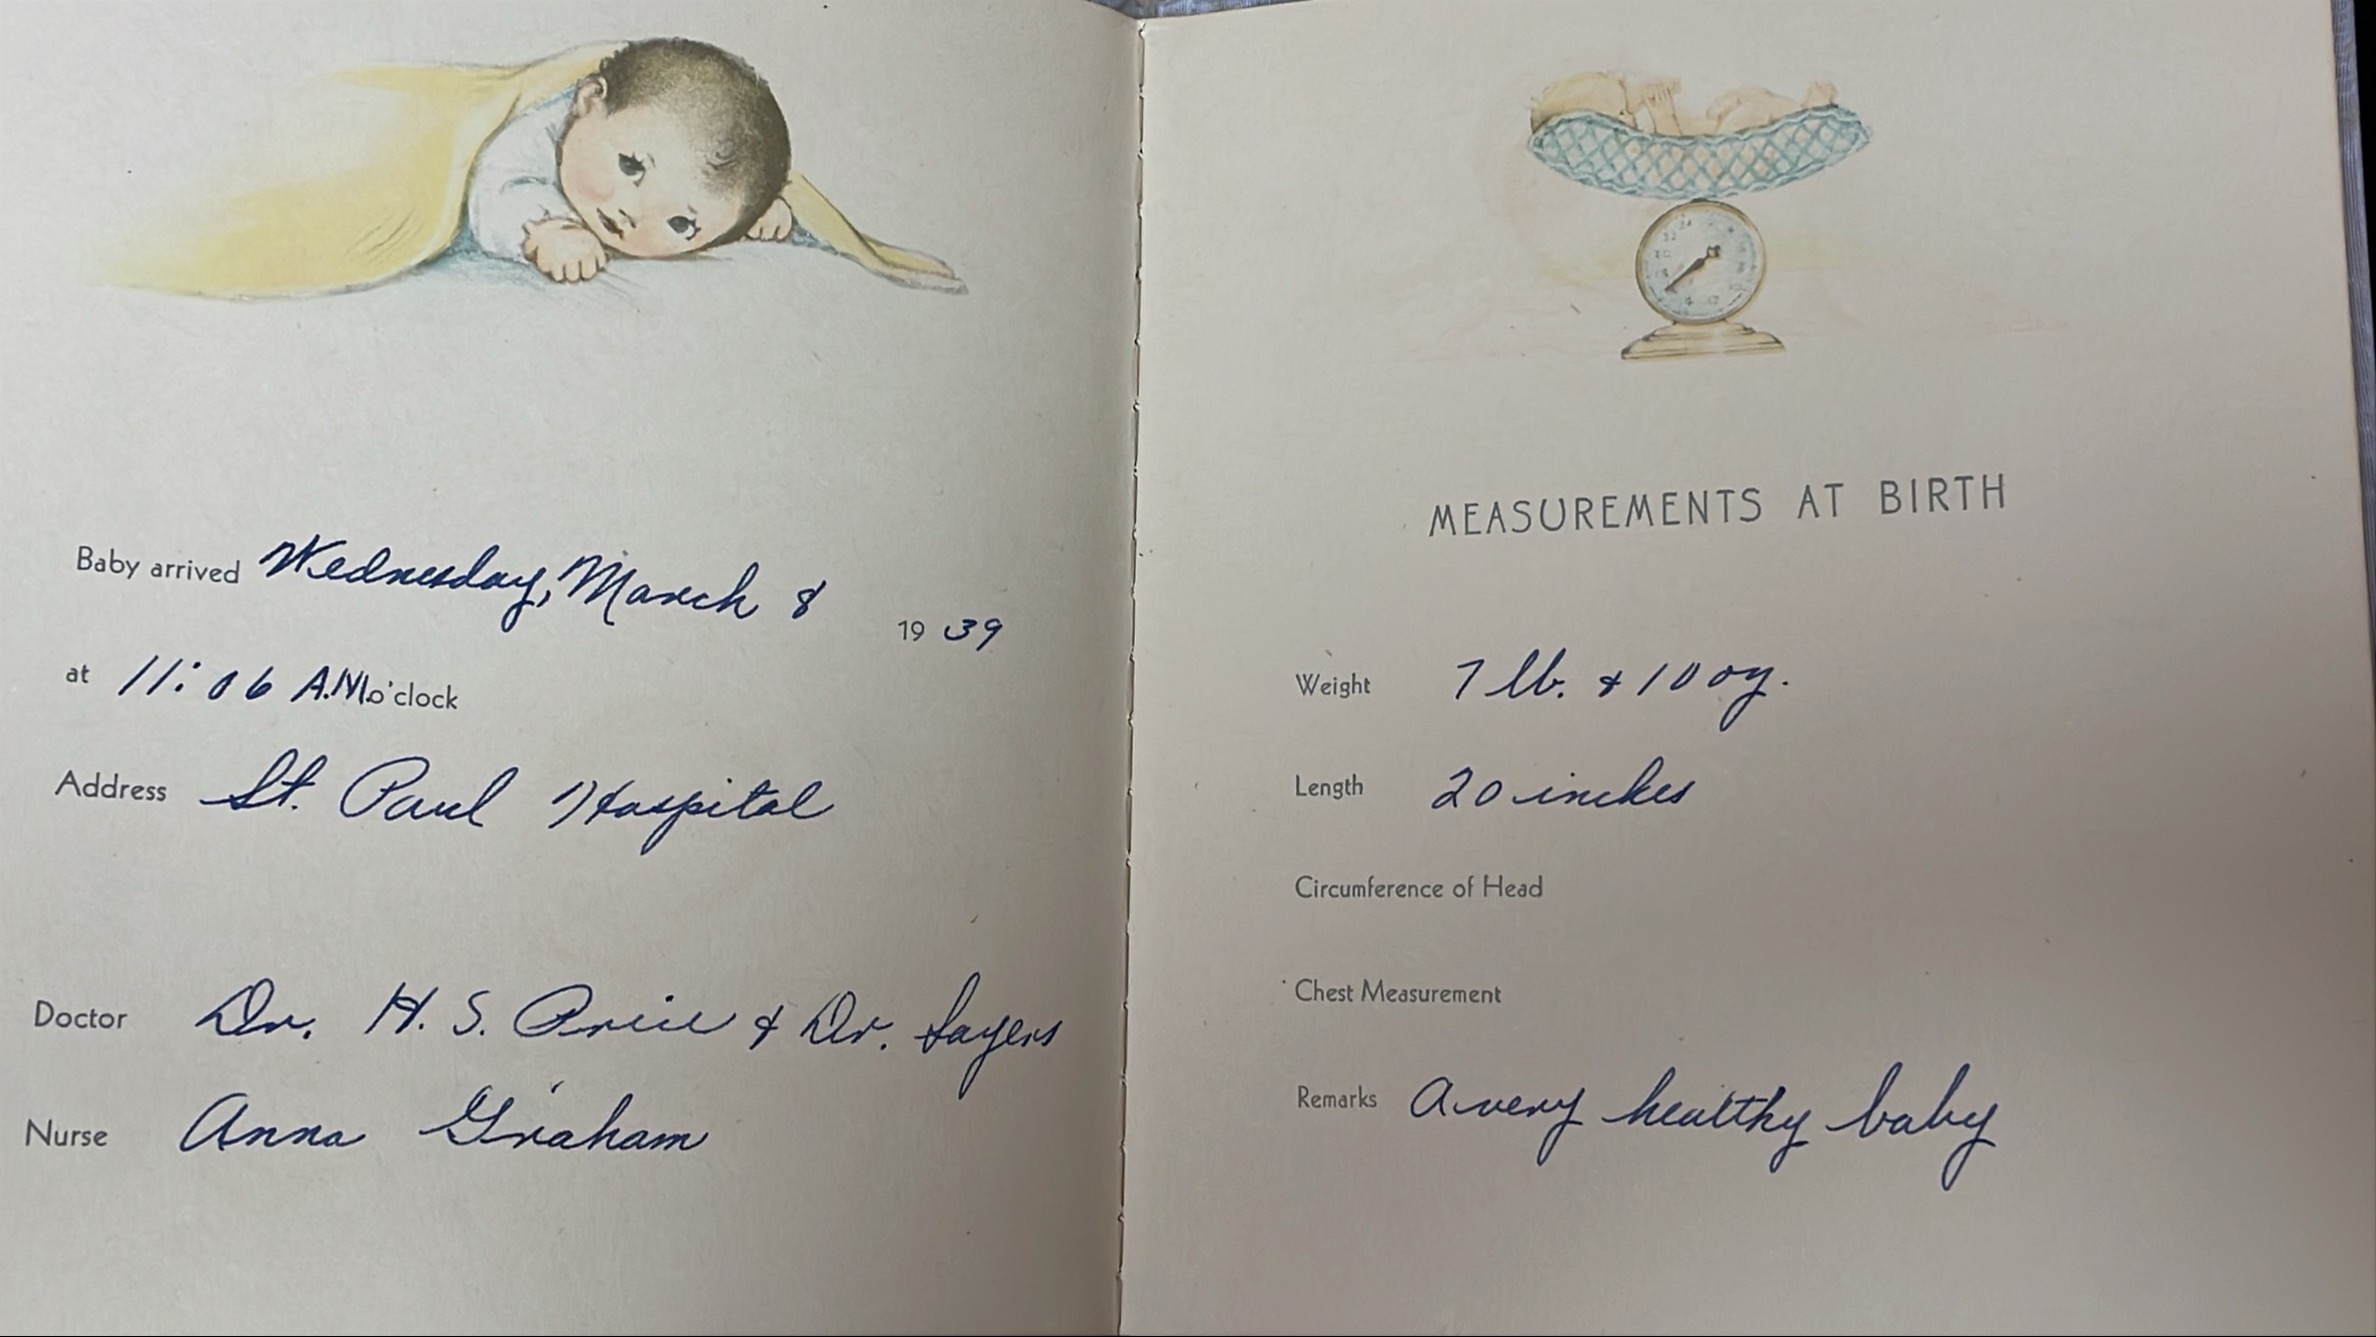 Baby arrived Wednesday, March 8 1939
at 11:06 A.M. o'clock
Address St. Paul Hospital
Doctor Dr. H. S. Price & Dr. Sayers
Nurse Anna Graham
MEASUREMENTS AT BIRTH
Weight 7 lb. & 10 oz.
Length 20 inches
Circumference of Head
Chest Measurement
Remarks A very healthy baby